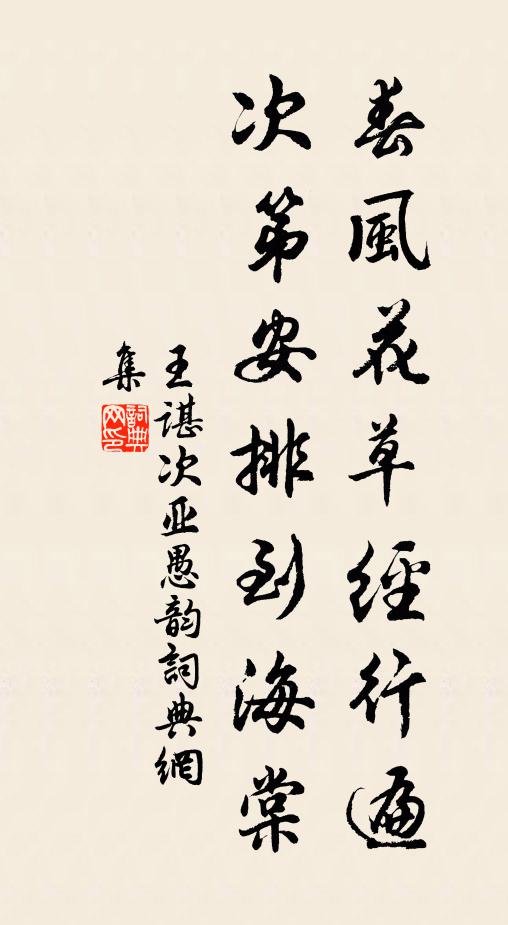 春風花草經行遍
次第安排到海棠
王谌次亚愚韵詞典網
集
詞典網印